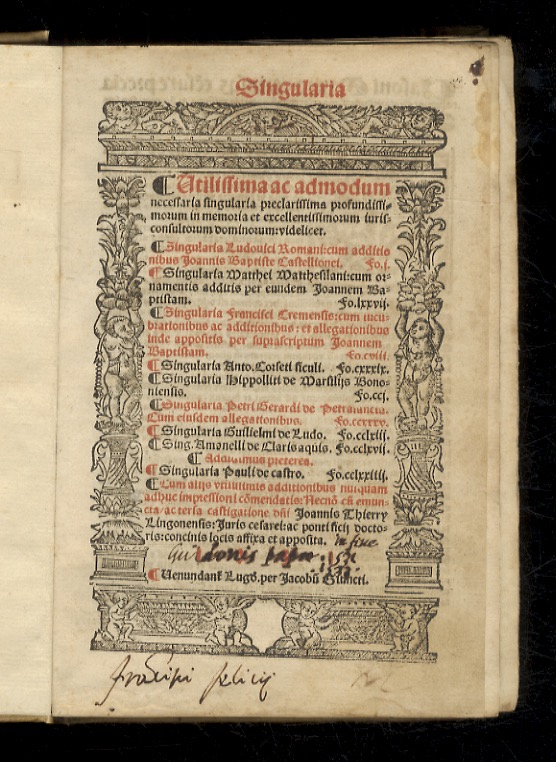 Singularia
¶ Utilissima ac admodum
necessaria singularia preclarissima profundissi-
morum in memoria et excellentissimorum iuris-
consultorum dominorum: videlicet.
¶ Singularia Ludouici Romani: cum additio
nibus Joannis Baptiste Castellionei. Fo.j.
¶ Singularia Matthei Matthesilani: cum or-
namentis additis per eundem Joannem Ba-
ptistam. Fo.lxxvij.
¶ Singularia Francisci Cremensis: cum lucu-
brationibus ac additionibus: et allegationibus
inde appositis per suprascriptum Joannem
Baptistam. Fo.cviii.
¶ Singularia Anto. Corseti siculi. Fo.cxxxix.
¶ Singularia Hippolliti de Marsilijs Bono-
niensis. Fo.ccj.
¶ Singularia Petri Gerardi de Petrasancta.
Cum eiusdem allegationibus.
¶ Singularia Guilielmi de Ludo. Fo.cclxiii.
¶ Sing. Amonelli de Claris aquis. Fo.cclxvii.
¶ Addidimus preterea.
¶ Singularia Pauli de castro. Fo.cclxxiiij.
¶ Cum alijs vtilibus additionibus nusquam
adhuc impressioni cōmendatis: Necnō cū emun-
cta/ac tersa castigatione dñi Joannis Thierry
Lingonensis: Juris cesarei: ac pontificij docto-
ris: concinis locis affixa et apposita. in fine
Gui donis papa:
¶ Uenundant̄ Lugd. per Jacobū Giuncti.